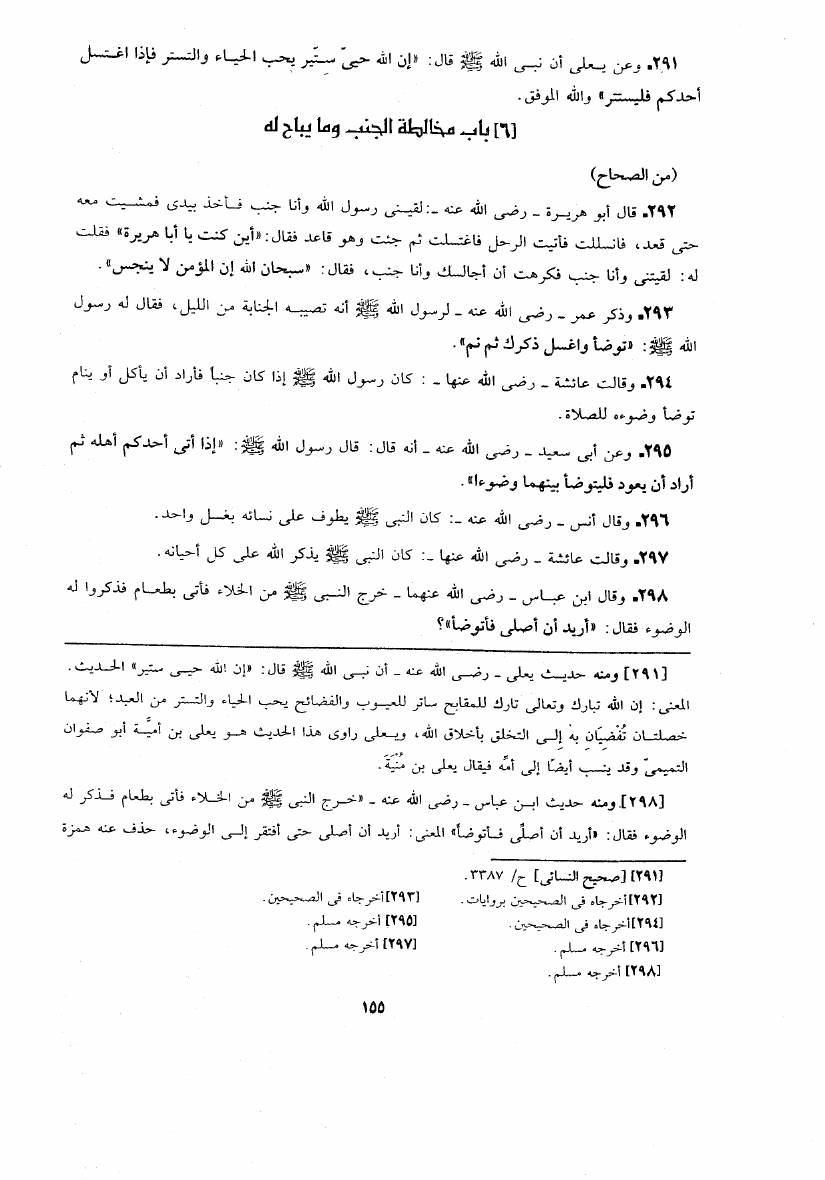 ٢٩١. وعن يعلى أن نبى الله ﷺ قال: «إن الله حيىّ ستّير يحب الحياء والتستر فإذا اغتسل
أحدكم فليستتر» والله الموفق.
[٦] باب مخالطة الجنب وما يباح له
(من الصحاح)
٢٩٢. قال أبو هريرة ـ رضى الله عنه ـ: لقينى رسول الله وأنا جنب فأخذ بيدى فمشيت معه
حتى قعد، فانسللت فأتيت الرحل فاغتسلت ثم جئت وهو قاعد فقال: «أين كنت يا أبا هريرة» فقلت
له: لقيتنى وأنا جنب فكرهت أن أجالسك وأنا جنب، فقال: «سبحان الله إن المؤمن لا ينجس».
٢٩٣. وذكر عمر ـ رضى الله عنه ـ لرسول الله ﷺ أنه تصيبه الجنابة من الليل، فقال له رسول
الله ﷺ: «توضأ واغسل ذكرك ثم نم».
٢٩٤. وقالت عائشة ـ رضى الله عنها ـ : كان رسول الله ﷺ إذا كان جنبا فأراد أن يأكل أو ينام
توضأ وضوءه للصلاة.
٢٩٥. وعن أبى سعيد ـ رضى الله عنه ـ أنه قال: قال رسول الله ﷺ: «إذا أتى أحدكم أهله ثم
أراد أن يعود فليتوضأ بينهما وضوءا».
٢٩٦. وقال أنس ـ رضى الله عنه ـ: كان النبى ﷺ يطوف على نسائه بغسل واحد.
٢٩٧. وقالت عائشة ـ رضى الله عنها ـ: كان النبى ﷺ يذكر الله على كل أحيانه.
٢٩٨. وقال ابن عباس ـ رضى الله عنهما ـ خرج النبى ﷺ من الخلاء فأتى بطعام فذكروا له
الوضوء فقال: «أريد أن أصلى فأتوضأ»؟
[٢٩١] ومنه حديث يعلى ـ رضى الله عنه ـ أن نبى الله ﷺ قال: «إن الله حيى ستير» الحديث.
المعنى: إن الله تبارك وتعالى تارك للمقابح ساتر للعيوب والفضائح يحب الحياء والتستر من العبد؛ لأنهما
خصلتان تُفْضِيَان به إلى التخلق بأخلاق الله، ويعلى راوى هذا الحديث هو يعلى بن أميَّة أبو صفوان
التميمىّ وقد ينسب أيضًا إلى أمِّه فيقال يعلى بن مُنْيَةَ.
[٢٩٨] ومنه حديث ابن عباس ـ رضى الله عنه ـ «خرج النبى ﷺ من الخلاء فأتى بطعام فذكر له
الوضوء فقال: «أريد أن أصلِّى فأتوضأ» المعنى: أريد أن أصلى حتى أفتقر إلى الوضوء، حذف عنه همزة
[٢٩١] [صحيح النسائى] ح/ ٣٣٨٧.
[٢٩٢] أخرجاه فى الصحيحين بروايات. [٢٩٣] أخرجاه فى الصحيحين.
[٢٩٤] أخرجاه فى الصحيحين. [٢٩٥] أخرجه مسلم.
[٢٩٦] أخرجه مسلم. [٢٩٧] أخرجه مسلم.
[٢٩٨] أخرجه مسلم.
١٥٥